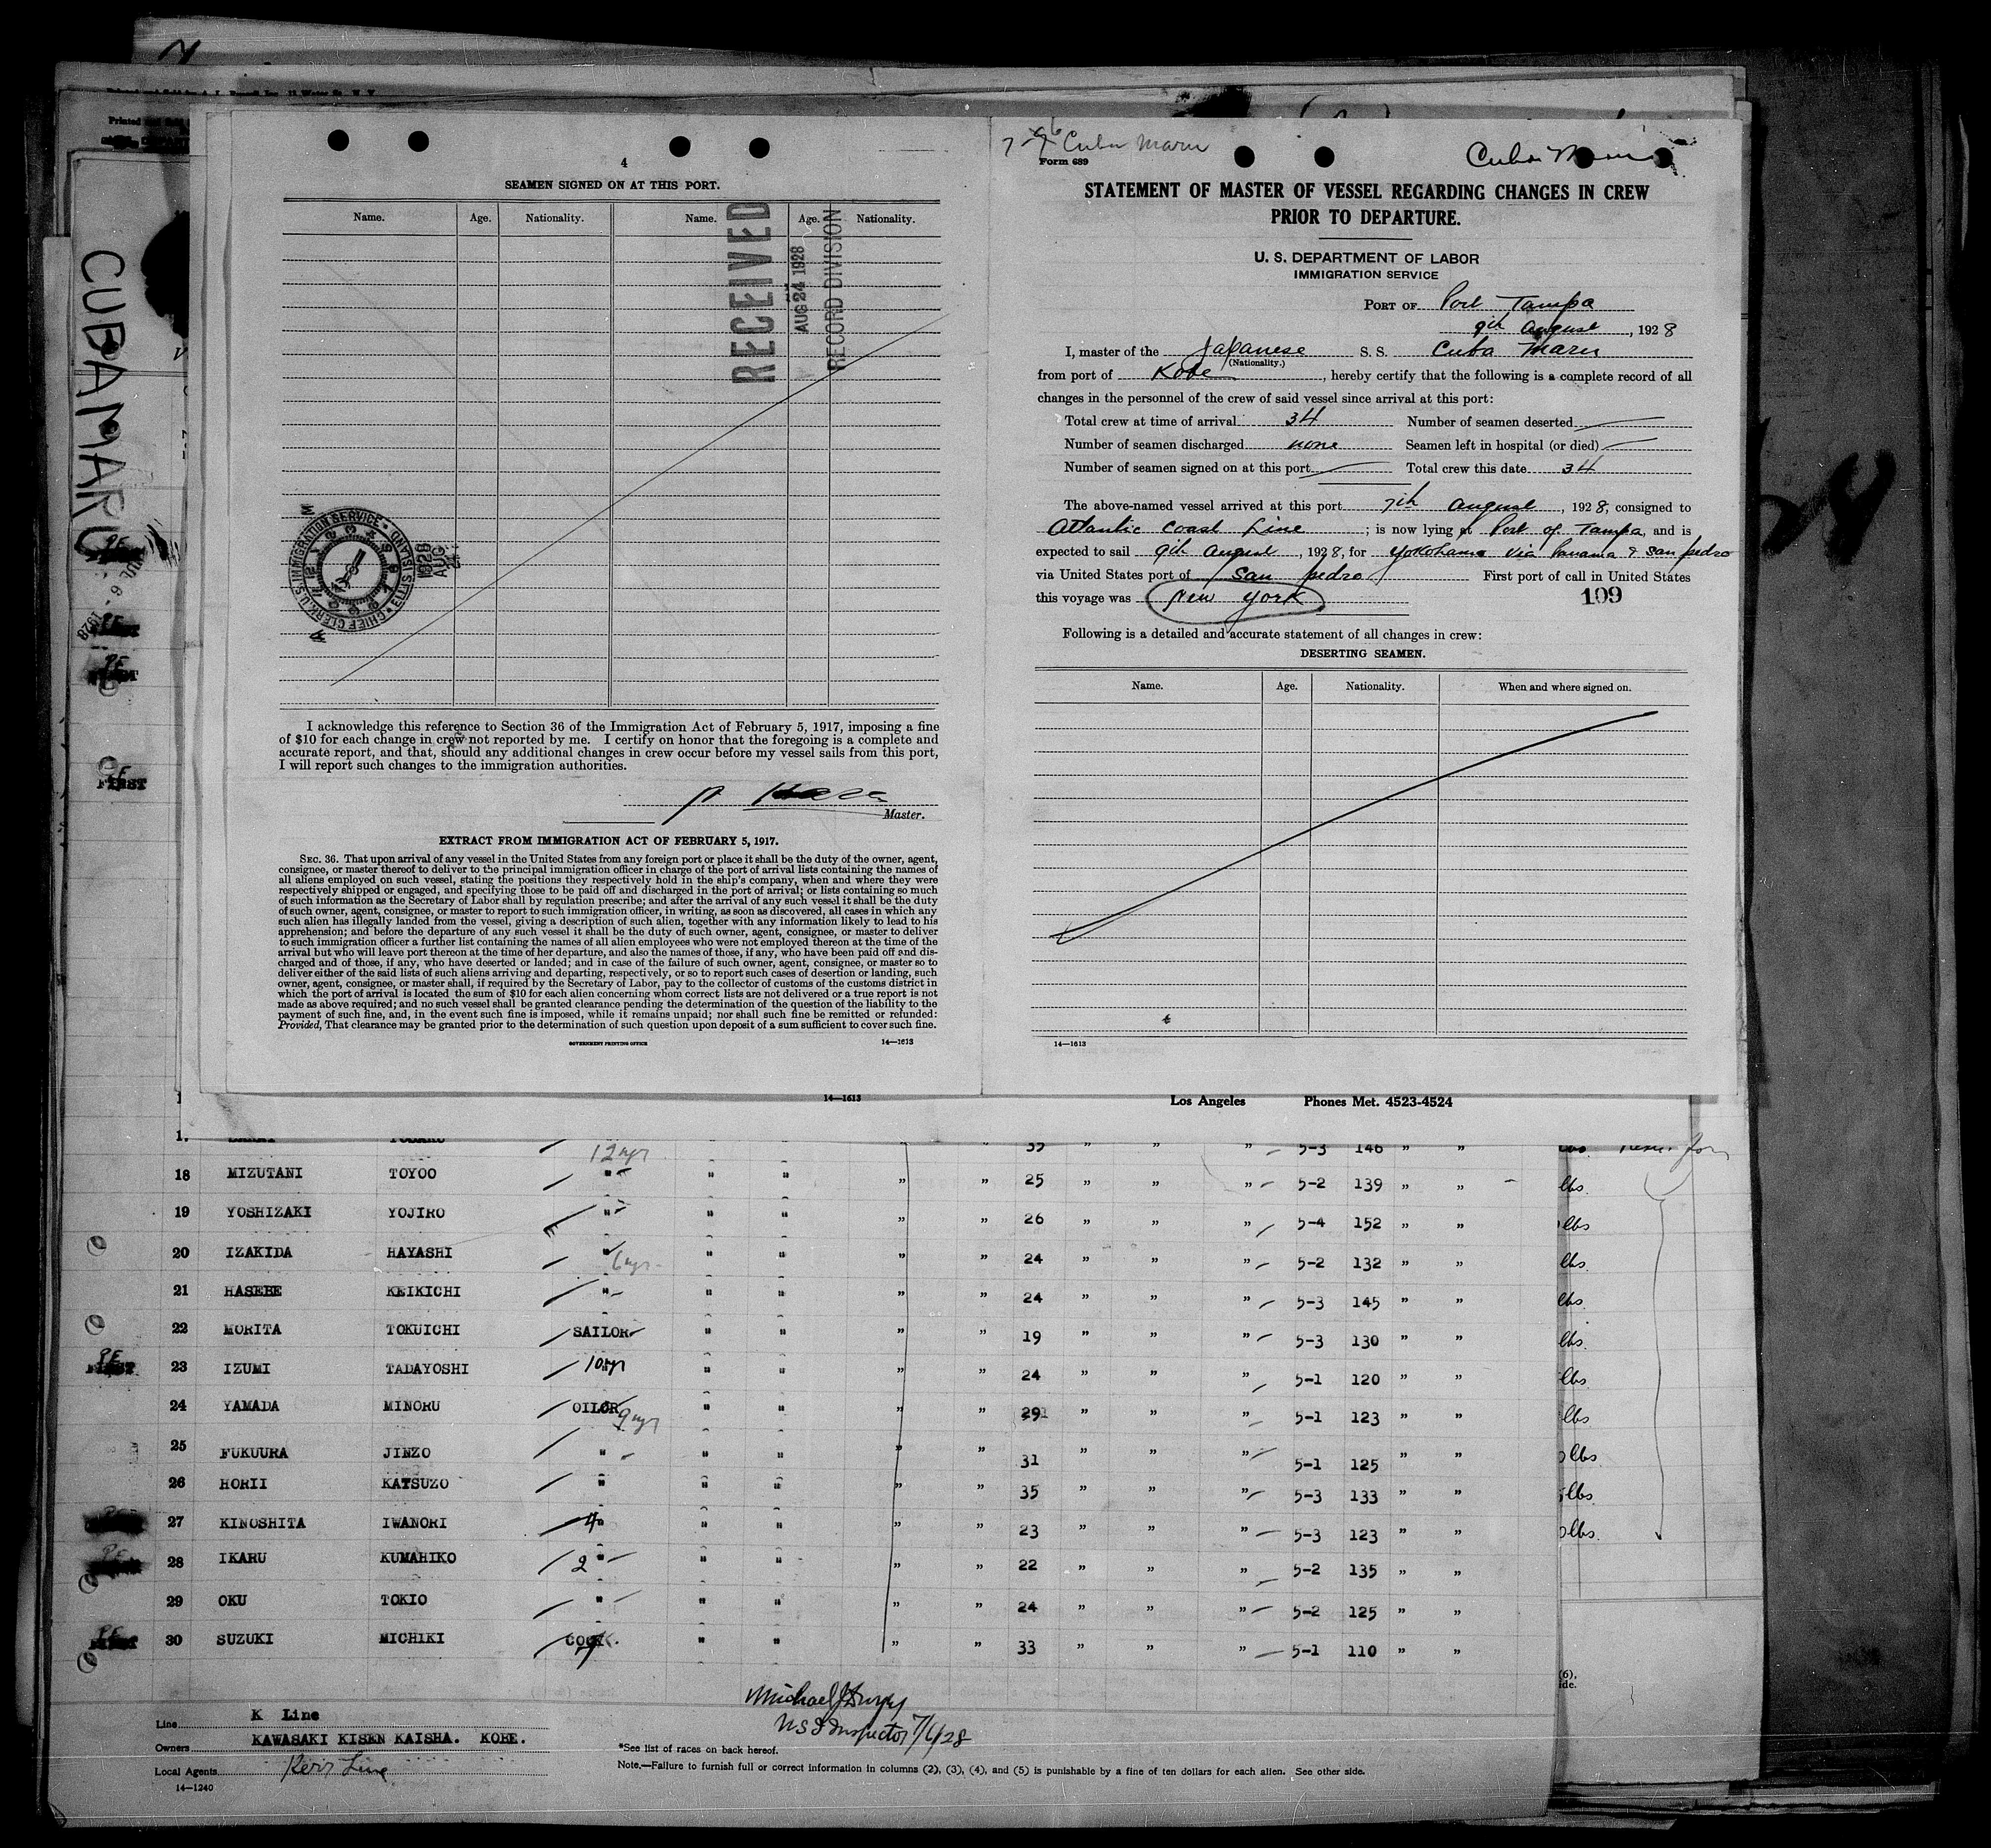 CUBA MARU
4
SEAMEN SIGNED ON AT THIS PORT.
Name. Age. Nationality. Name. Age. Nationality.
RECEIVED
AUG 24 1928
RECORD DIVISION
U.S. IMMIGRATION SERVICE
CHIEF CLERK
ELLIS ISLAND
1928
AUG
24
I acknowledge this reference to Section 36 of the Immigration Act of February 5, 1917, imposing a fine
of $10 for each change in crew not reported by me. I certify on honor that the foregoing is a complete and
accurate report, and that, should any additional changes in crew occur before my vessel sails from this port,
I will report such changes to the immigration authorities.
Master.
EXTRACT FROM IMMIGRATION ACT OF FEBRUARY 5, 1917.
SEC. 36. That upon arrival of any vessel in the United States from any foreign port or place it shall be the duty of the owner, agent,
consignee, or master thereof to deliver to the principal immigration officer in charge of the port of arrival lists containing the names of
all aliens employed on such vessel, stating the positions they respectively hold in the ship's company, when and where they were
respectively shipped or engaged, and specifying those to be paid off and discharged in the port of arrival; or lists containing so much
of such information as the Secretary of Labor shall by regulation prescribe; and after the arrival of any such vessel it shall be the duty
of such owner, agent, consignee, or master to report to such immigration officer, in writing, as soon as discovered, all cases in which any
such alien has illegally landed from the vessel, giving a description of such alien, together with any information likely to lead to his
apprehension; and before the departure of any such vessel it shall be the duty of such owner, agent, consignee, or master to deliver
to such immigration officer a further list containing the names of all alien employees who were not employed thereon at the time of the
arrival but who will leave port thereon at the time of her departure, and also the names of those, if any, who have been paid off and dis-
charged and of those, if any, who have deserted or landed; and in case of the failure of such owner, agent, consignee, or master so to
deliver either of the said lists of such aliens arriving and departing, respectively, or so to report such cases of desertion or landing, such
owner, agent, consignee, or master shall, if required by the Secretary of Labor, pay to the collector of customs of the customs district in
which the port of arrival is located the sum of $10 for each alien concerning whom correct lists are not delivered or a true report is not
made as above required; and no such vessel shall be granted clearance pending the determination of the question of the liability to the
payment of such fine, and, in the event such fine is imposed, while it remains unpaid; nor shall such fine be remitted or refunded:
Provided, That clearance may be granted prior to the determination of such question upon deposit of a sum sufficient to cover such fine.
GOVERNMENT PRINTING OFFICE 14—1613
Cuba Maru
Form 689
Cuba Maru
STATEMENT OF MASTER OF VESSEL REGARDING CHANGES IN CREW
PRIOR TO DEPARTURE.
U. S. DEPARTMENT OF LABOR
IMMIGRATION SERVICE
PORT OF Port Tampa
9th August, 1928
I, master of the Japanese S. S. Cuba Maru
(Nationality.)
from port of Kobe, hereby certify that the following is a complete record of all
changes in the personnel of the crew of said vessel since arrival at this port:
Total crew at time of arrival 34 Number of seamen deserted —
Number of seamen discharged none Seamen left in hospital (or died) —
Number of seamen signed on at this port — Total crew this date 34
The above-named vessel arrived at this port 7th August, 1928, consigned to
Atlantic Coast Line; is now lying at Port of Tampa, and is
expected to sail 9th August, 1928, for Yokohama via Panama & San Pedro
via United States port of San Pedro First port of call in United States
this voyage was New York 109
Following is a detailed and accurate statement of all changes in crew:
DESERTING SEAMEN.
Name. Age. Nationality. When and where signed on.
14—1613
14—1613 Los Angeles Phones Met. 4523-4524
12 yr 5-3 146 " "
18 MIZUTANI TOYOO " " " " " 25 " " " 5-2 139 " " lbs.
19 YOSHIZAKI YOJIRO " " " " " 26 " " " 5-4 152 " " lbs
20 IZAKIDA HAYASHI " 6 yr " " " " 24 " " " 5-2 132 " " lbs.
21 HASEBE KEIKICHI " " " " " 24 " " " 5-3 145 " " lbs.
22 MORITA TOKUICHI SAILOR " " " " 19 " " " 5-3 130 " " lbs.
23 IZUMI TADAYOSHI 10 yr " " " " 24 " " " 5-1 120 " " lbs
24 YAMADA MINORU OILOR 9 yr " " " " 29 " " " 5-1 123 " " lbs
25 FUKUURA JINZO " " " " " 31 " " " 5-1 125 " " lbs
26 HORII KATSUZO " " " " " 35 " " " 5-3 133 " " lbs.
27 KINOSHITA IWANORI 4 " " " " 23 " " " 5-3 123 " " lbs.
28 IKARU KUMAHIKO 2 " " " " " 22 " " " 5-2 135 " "
29 OKU TOKIO " " " " " 24 " " " 5-2 125 " "
30 SUZUKI MICHIKI COOK " " " " 33 " " " 5-1 110 " "
FIRST
Line K Line
Owners KAWASAKI KISEN KAISHA. KOBE.
Local Agents Kerr Line
14—1240
US Inspector 7/6/28
*See list of races on back hereof.
Note.—Failure to furnish full or correct information in columns (2), (3), (4), and (5) is punishable by a fine of ten dollars for each alien. See other side.